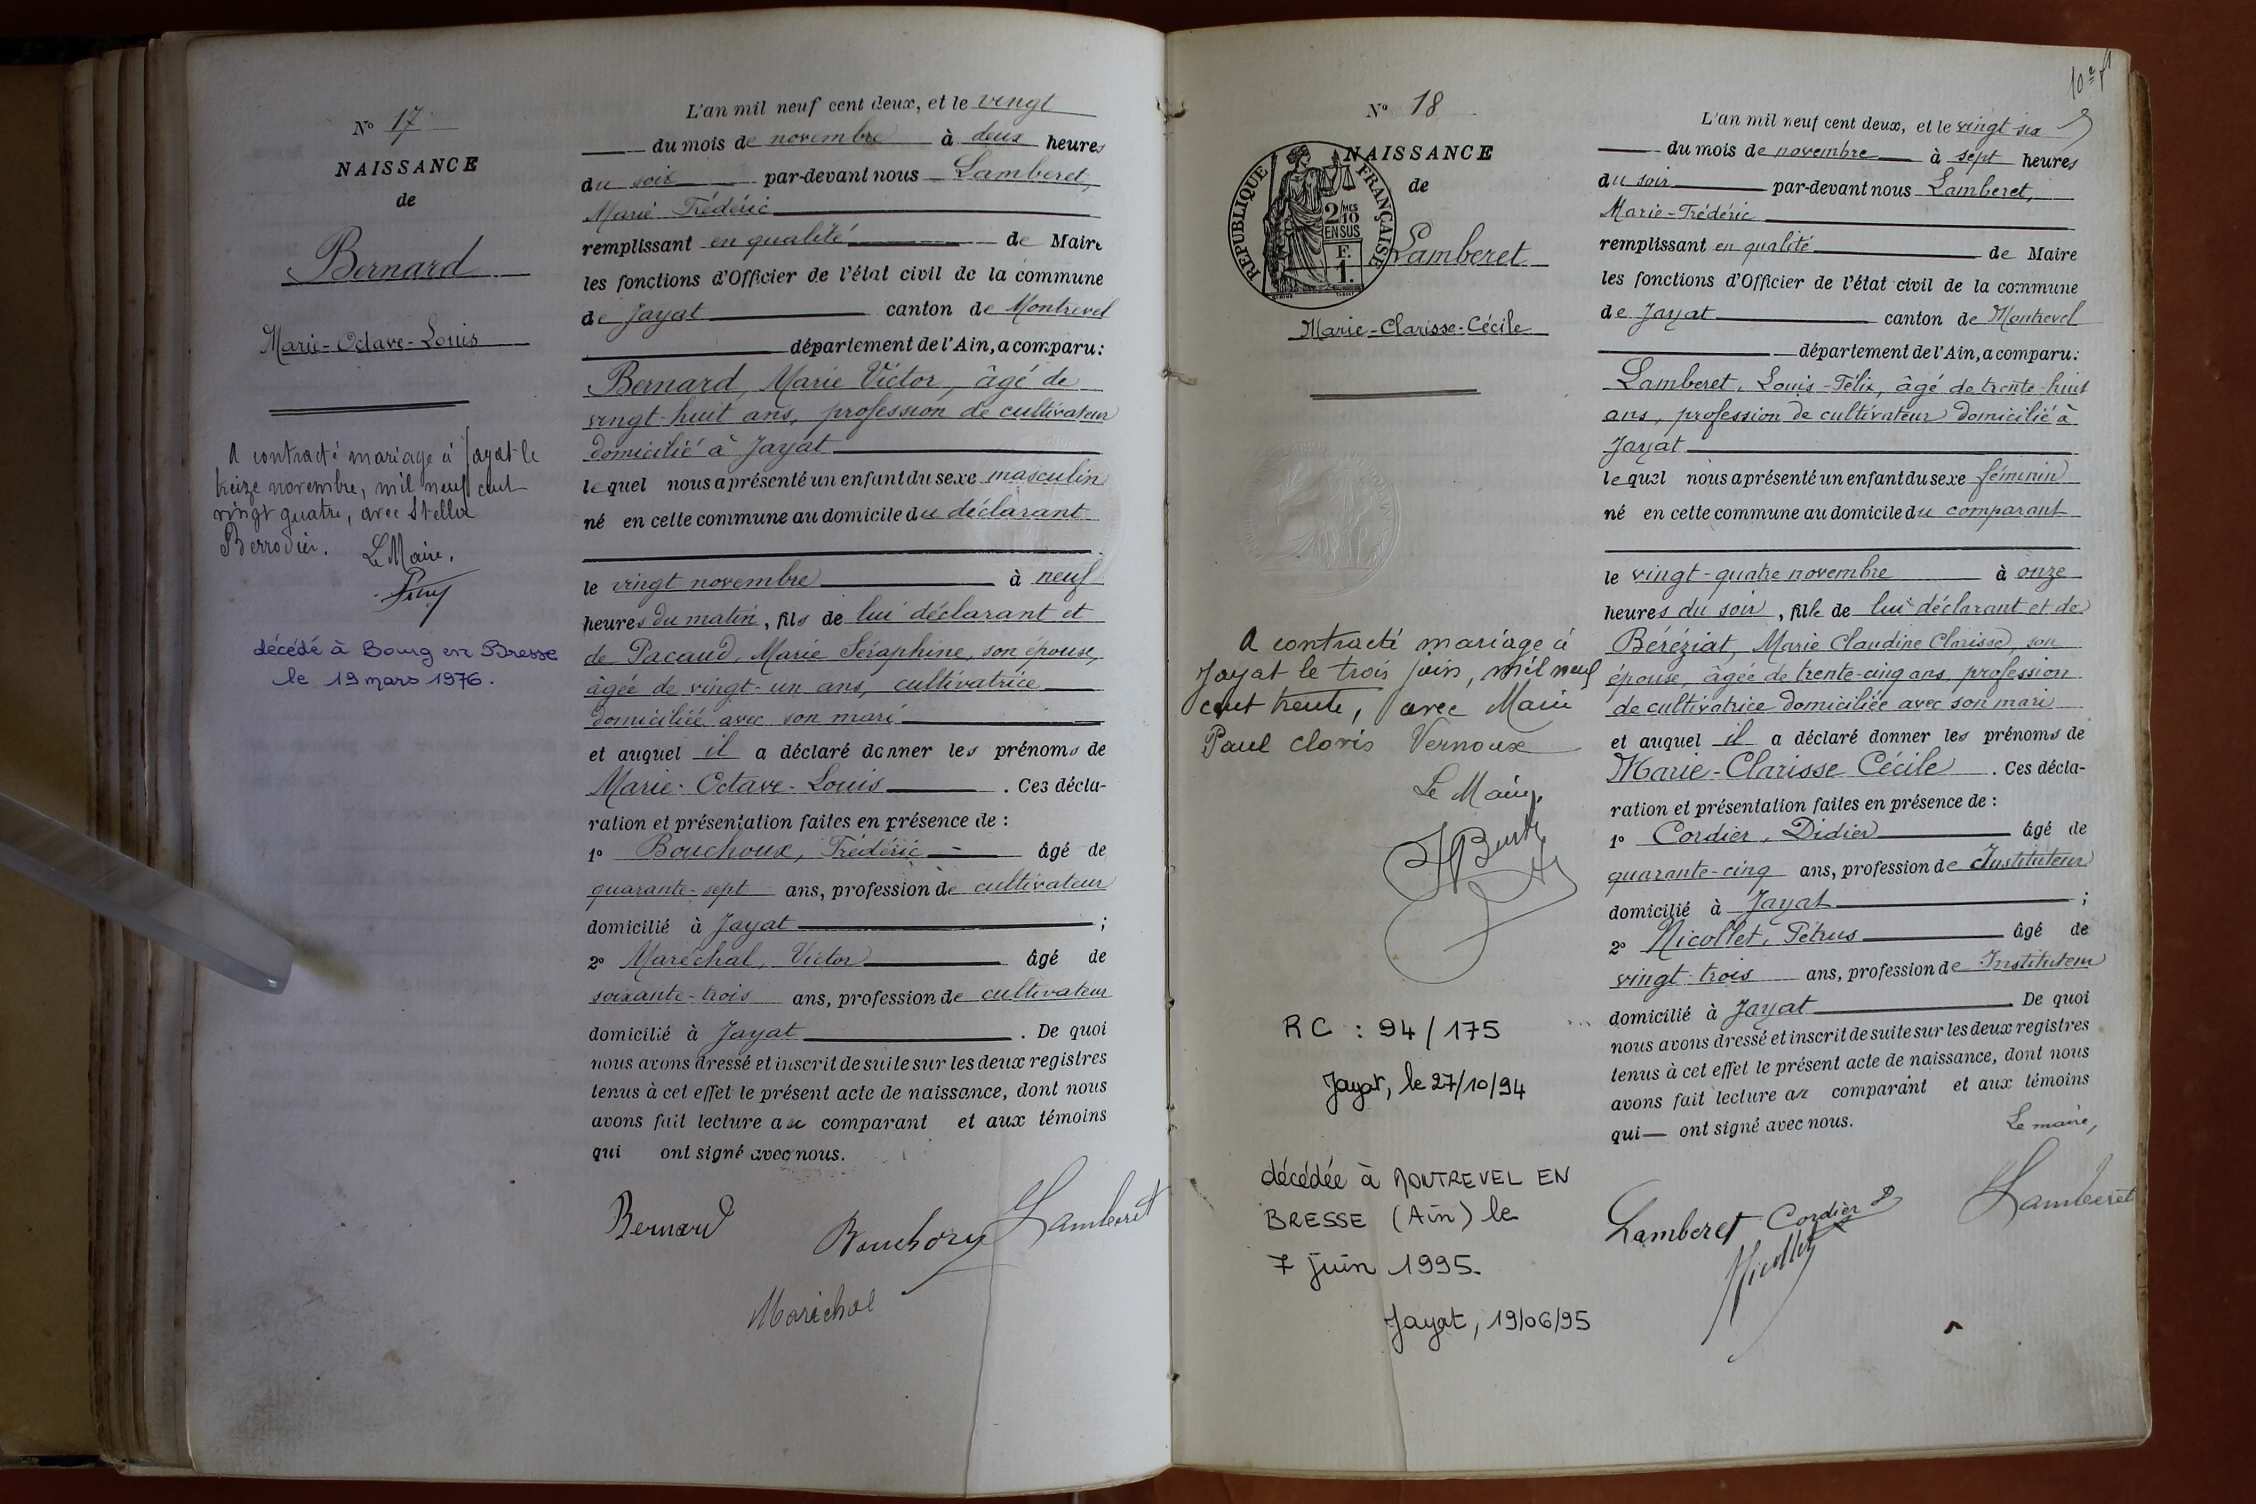 N° 17
NAISSANCE
de
Bernard
Marie-Octave-Louis
A contracté mariage à Jayat le
treize novembre, mil neuf cent
vingt quatre, avec Stella
Berrodier.
Le Maire.
décédé à Bourg en Bresse
le 19 mars 1976.
L'an mil neuf cent deux, et le vingt
du mois de novembre à deux heures
du soir par-devant nous Lamberet,
Marie Frédéric
remplissant en qualité de Maire
les fonctions d'Officier de l'état civil de la commune
de Jayat canton de Montrevel
département de l'Ain, a comparu:
Bernard, Marie Victor, âgé de
vingt-huit ans, profession de cultivateur
domicilié à Jayat
lequel nous a présenté un enfant du sexe masculin
né en cette commune au domicile du déclarant
le vingt novembre à neuf
heures du matin, fils de lui déclarant et
de Pacaud, Marie Séraphine, son épouse,
âgée de vingt-un ans, cultivatrice
domiciliée avec son mari
et auquel il a déclaré donner les prénoms de
Marie-Octave-Louis. Ces décla-
ration et présentation faites en présence de :
1° Bouchoux, Frédéric âgé de
quarante-sept ans, profession de cultivateur
domicilié à Jayat ;
2° Maréchal, Victor âgé de
soixante-trois ans, profession de cultivateur
domicilié à Jayat. De quoi
nous avons dressé et inscrit de suite sur les deux registres
tenus à cet effet le présent acte de naissance, dont nous
avons fait lecture au comparant et aux témoins
qui ont signé avec nous.
Bernard
Bouchoux Lamberet
Maréchal
10e f
N° 18
NAISSANCE
de
RÉPUBLIQUE FRANÇAISE
2/10 MES
EN SUS
F.
1.
Lamberet
Marie-Clarisse-Cécile
A contracté mariage à
Jayat le trois juin, mil neuf
cent trente, avec Marie
Paul Clovis Vernoux
Le Maire
RC : 94/175
Jayat, le 27/10/94
décédée à MONTREVEL EN
BRESSE (Ain) le
7 juin 1995.
Jayat, 19/06/95
L'an mil neuf cent deux, et le vingt-six
du mois de novembre à sept heures
du soir par-devant nous Lamberet,
Marie-Frédéric
remplissant en qualité de Maire
les fonctions d'Officier de l'état civil de la commune
de Jayat canton de Montrevel
département de l'Ain, a comparu:
Lamberet, Louis-Félix, âgé de trente-huit
ans, profession de cultivateur domicilié à
Jayat
lequel nous a présenté un enfant du sexe féminin
né en cette commune au domicile du comparant
le vingt-quatre novembre à onze
heures du soir, fille de lui déclarant et de
Béréziat, Marie Claudine Clarisse, son
épouse, âgée de trente-cinq ans, profession
de cultivatrice domiciliée avec son mari
et auquel il a déclaré donner les prénoms de
Marie-Clarisse Cécile. Ces décla-
ration et présentation faites en présence de :
1° Cordier, Didier âgé de
quarante-cinq ans, profession de Instituteur
domicilié à Jayat ;
2° Nicollet, Pétrus âgé de
vingt-trois ans, profession de Instituteur
domicilié à Jayat. De quoi
nous avons dressé et inscrit de suite sur les deux registres
tenus à cet effet le présent acte de naissance, dont nous
avons fait lecture au comparant et aux témoins
qui ont signé avec nous.
Le maire,
Lamberet Cordier D Lamberet
Nicollet